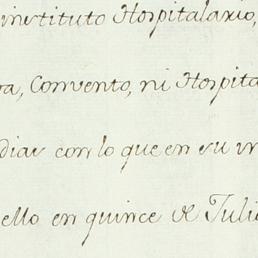 instituto Hospitalario,
a, Convento, ni Hospita
diar con lo que en su in
ello en quince de Juli